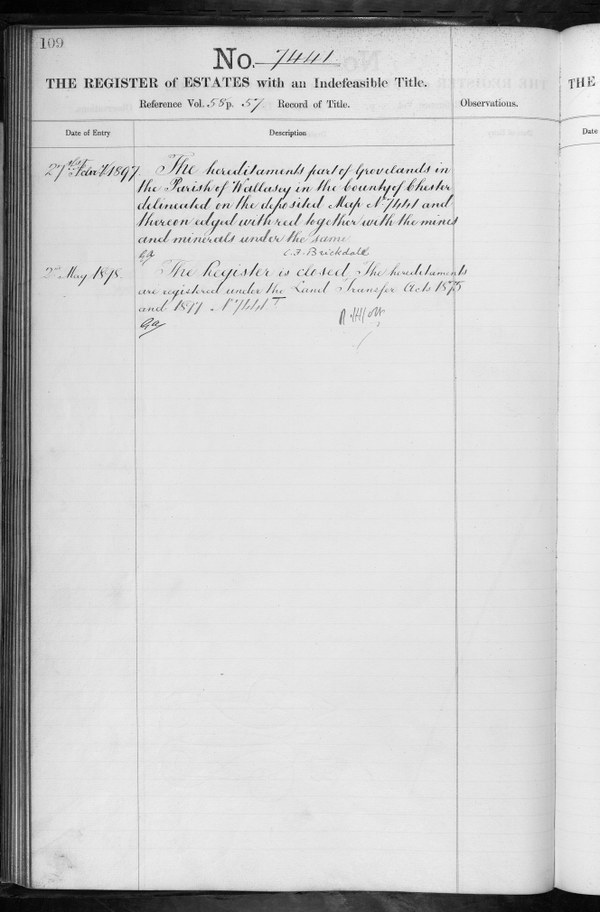 109
No. 7441
THE REGISTER of ESTATES with an Indefeasible Title.
Reference Vol. 55 p. 57 Record of Title.
Observations.
Date of Entry
Description
27th 1897
The hereditaments part of Grovelands in
the Parish of Wallasey in the County of Chester
delineated on the deposited Map No 7441 and
thereon edged with red together with the mines
and minerals under the same
C. F. Brickdale
2nd May 1898.
The Register is closed The hereditaments
are registered under the Land Transfer Acts 1875
and 1897 No 7441
THE
Date